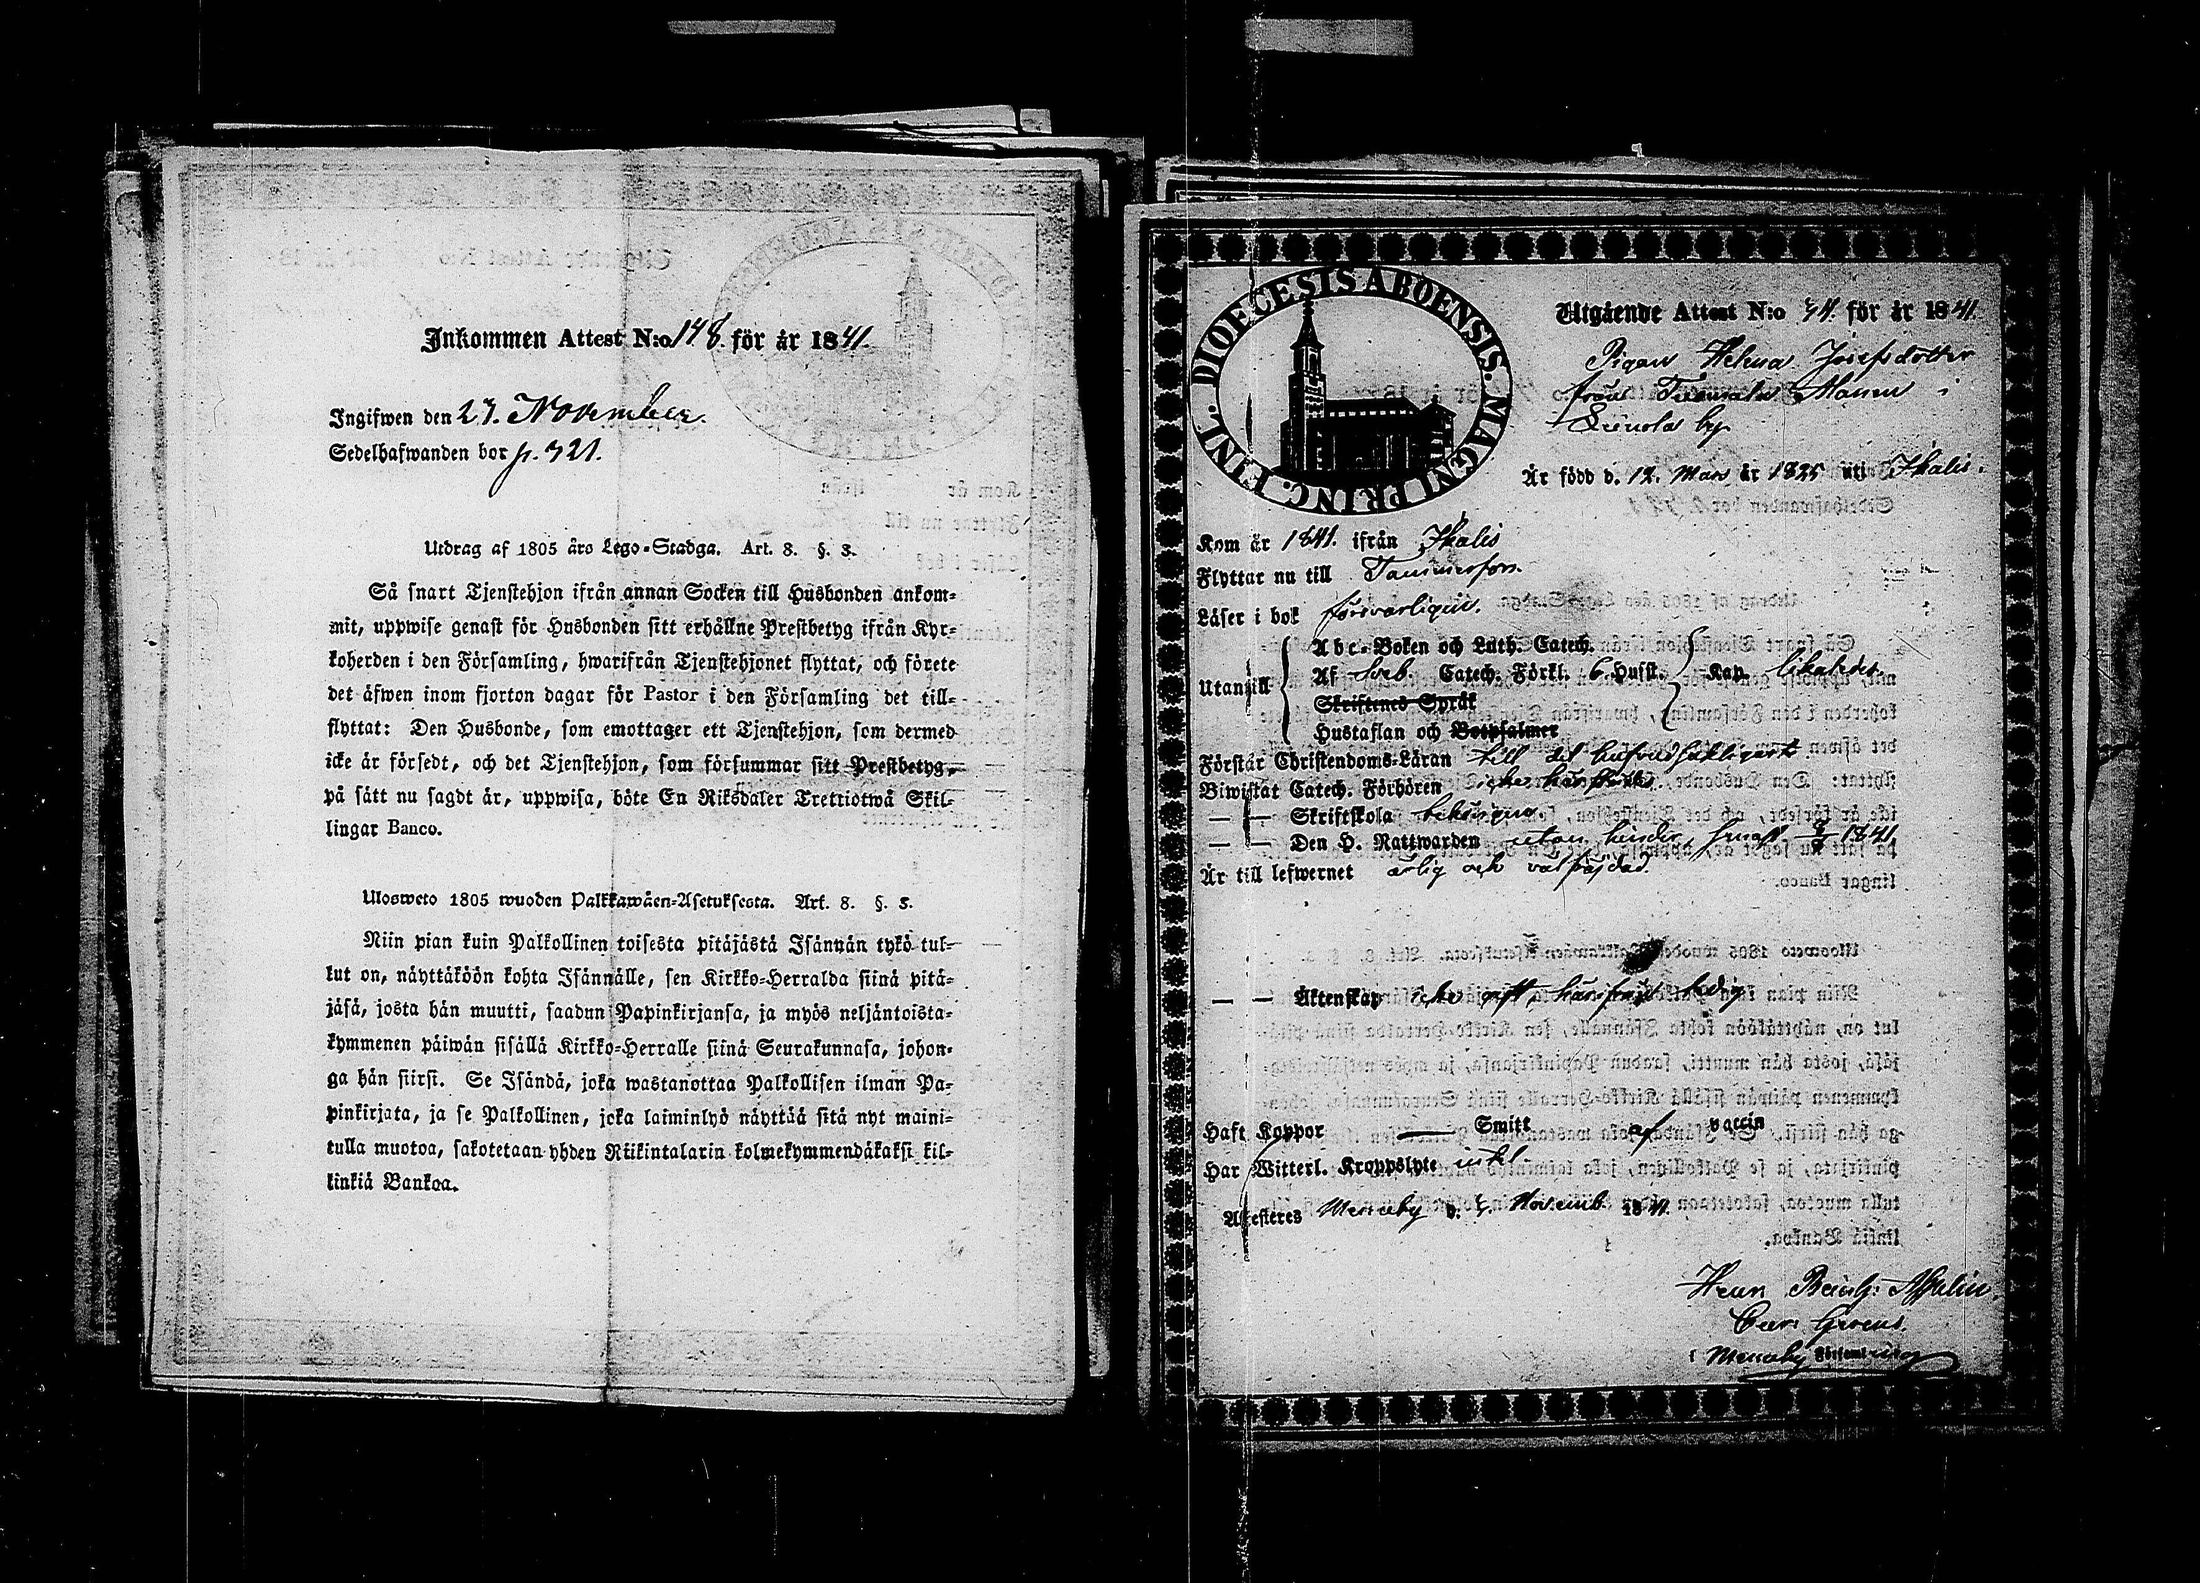 Inkommen Attest N:o 148. för år 1841.
Ingifwen den 27. November.
Sedelhafwanden bor p. 321.
Utdrag af 1805 års Lego-Stadga. Art. 8. §. 3.
Så snart Tjenstehjon ifrån annan Socken till Husbonden ankom-
mit, uppwise genast för Husbonden sitt erhållne Prestbetyg ifrån Kyr-
koherden i den Församling, hwarifrån Tjenstehjonet flyttat, och förete
det äfwen inom fjorton dagar för Pastor i den Församling det till-
flyttat: Den Husbonde, som emottager ett Tjenstehjon, som dermed
icke är försedt, och det Tjenstehjon, som försummar sitt Prestbetyg,
på sätt nu sagdt är, uppwisa, böte En Riksdaler Tretriotwå Skil-
lingar Banco.
Ulosweto 1805 wuoden Palkkawäen-Asetuksesta. Art. 8. §. 3.
Niin pian kuin Palkollinen toisesta pitäjästä Isännän tykö tul-
lut on, näyttäköön kohta Isännälle, sen Kirkko-Herralda siinä pitä-
jäsä, josta hän muutti, saadun Papinkirjansa, ja myös neljäntoista-
kymmenen päiwän sisällä Kirkko-Herralle siinä Seurakunnasa, johon-
ga hän siirsi. Se Isändä, joka wastanottaa Palkollisen ilman Pa-
pinkirjata, ja se Palkollinen, joka laiminlyö näyttää sitä nyt maini-
tulla muotoa, sakotetaan yhden Riikintalarin kolmekymmendäkaksi kil-
linkiä Bankoa.
DIOECESIS ABOENSIS. MAGNI PRINC. FINL.
Utgående Attest N:o 34. för år 1841.
Pigan Helena Josefsdotter
från
by
Är född d. 12. Mars år 1825 uti Ikalis.
Kom år 1841. ifrån Ikalis
Flyttar nu till Tammerfors.
Läser i bok försvarligen.
Utantill
Abc-Boken och Luth. Catech.
Af Sveb. Catech. Förkl. 6 Husst. Kap. likaledes
Skriftenes Språk
Hustaflan och Botpsalmer
Förstår Christendoms-Läran till det hufvudsakligaste
Biwistat Catech. Förhören
— — Skriftskola behörigen.
— — Den H. Nattwarden utan hinder, senast 1841
Är till lefwernet ärlig och väl fräjdad.
— — Äktenskap icke gift, härifrån ledig
Haft Koppor — Smitt af vaccin
Har Witterl. Kroppslyte intet
Attesteres d. 5. Novemb. 1841.
Församling